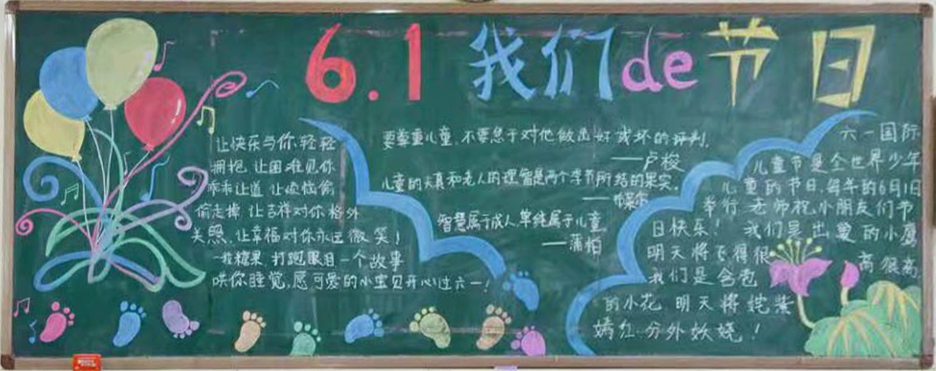 6.1 我们de节日
让快乐与你轻轻
拥抱,让困难见你
乖乖让道,让烦恼偷
偷走掉,让吉祥对你格外
关照,让幸福对你永远微笑!
一粒糖果 打跑 一个故事
哄你睡觉,愿可爱的小宝贝开心过六一!
要尊重儿童,不要急于对他做出好或坏的评判。
——卢梭
儿童的天真和老人的理智是两个季节所结的果实。
——布莱尔
智慧属于成人,单纯属于儿童
——蒲柏
六一国际
儿童节是全世界少年
儿童的节日,每年的6月1日
举行 老师祝小朋友们节
日快乐! 我们是出巢的小鹰
明天将飞得很高很高
我们是含苞
的小花 明天将姹紫
嫣红,分外妖娆!